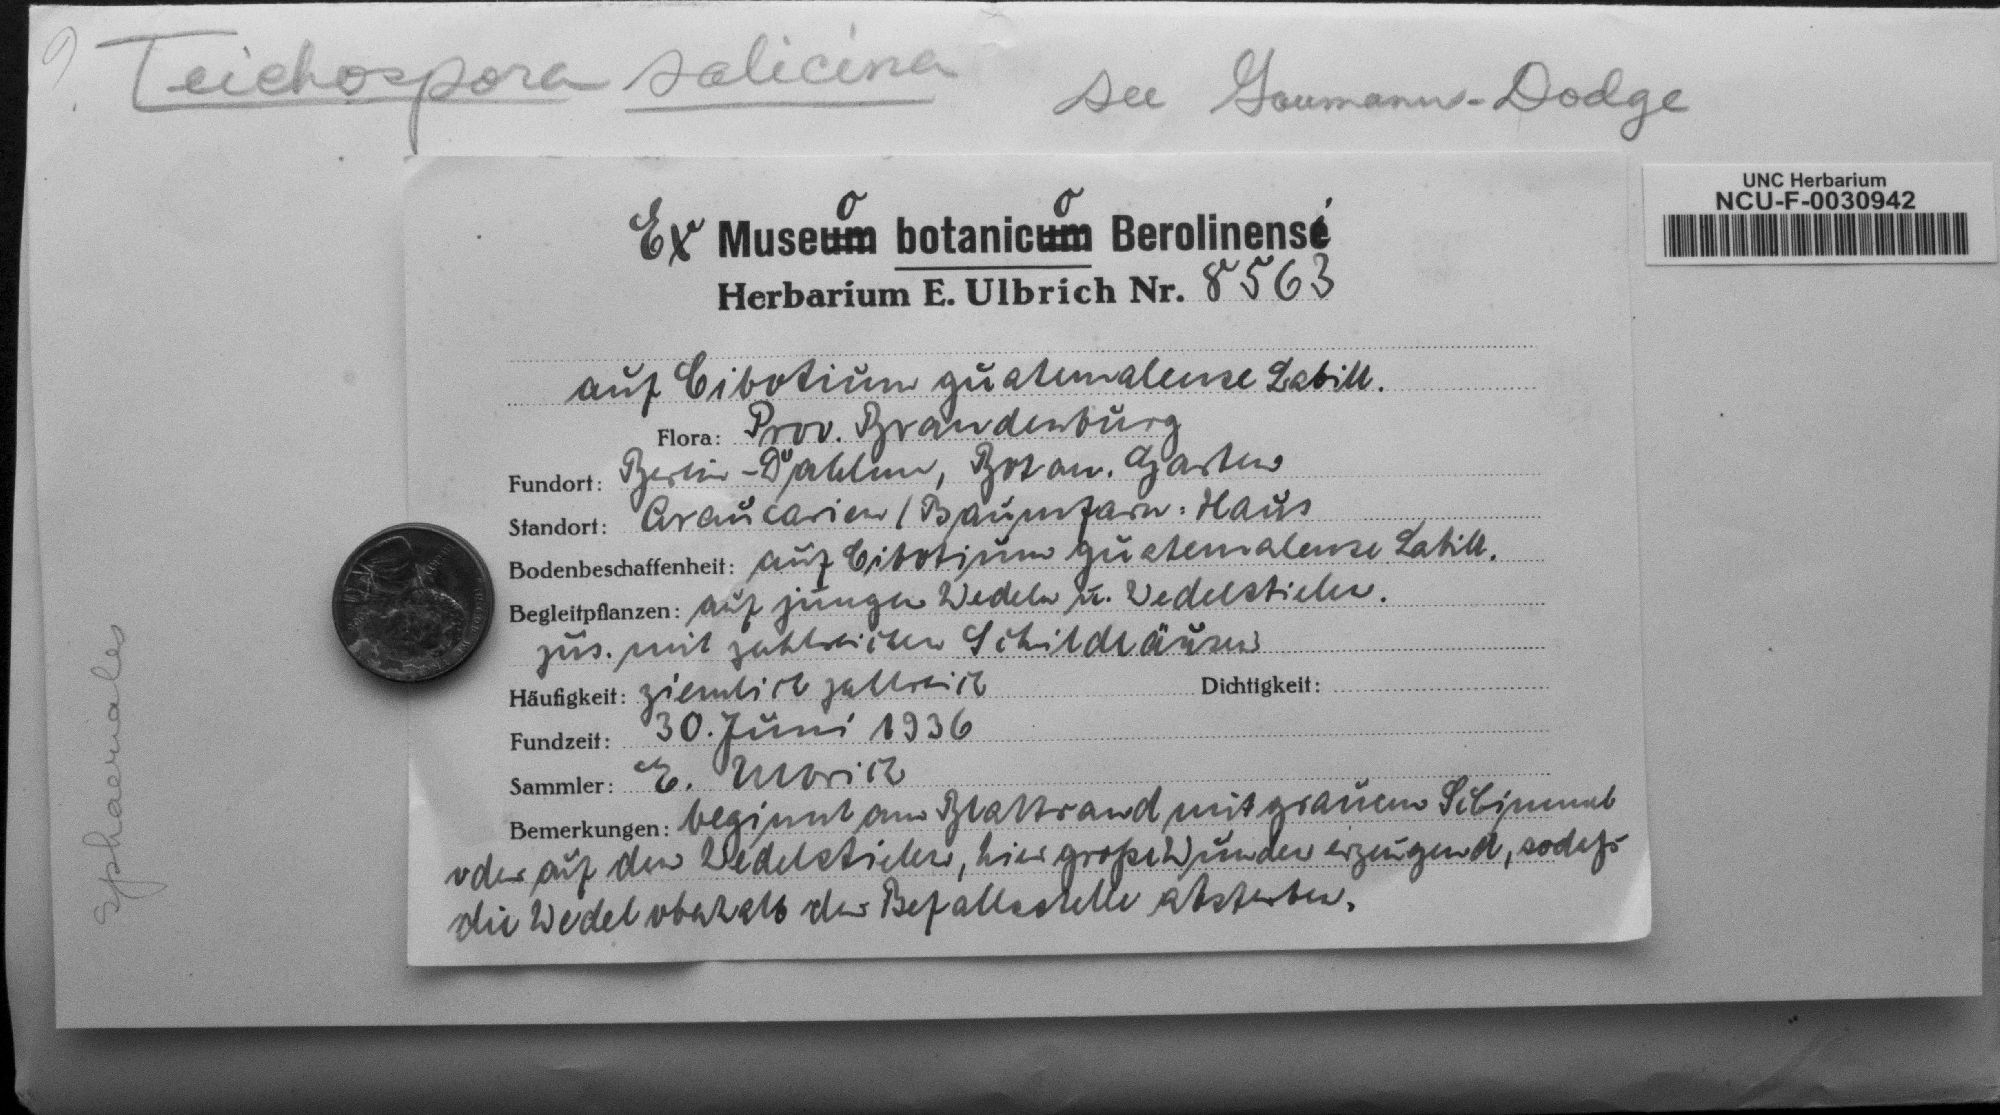 ? Teichospora salicina see Gaumann-Dodge
UNC Herbarium
NCU-F-0030942
Ex Museo botanico Berolinensi
Herbarium E. Ulbrich Nr. 8563
auf Cibotium guatemalense Labill.
Flora: Prov. Brandenburg
Fundort: Berlin-Dahlem, Botan. Garten
Standort: Araucarien/Baumfarn-Haus
Bodenbeschaffenheit: auf Cibotium guatemalense Labill.
Begleitpflanzen: auf jungen Wedeln u. Wedelstielen.
zus. mit zahlreichen Schildläusen
Häufigkeit: ziemlich zahlreich Dichtigkeit:
Fundzeit: 30. Juni 1936
Sammler: E. Morich
Bemerkungen: beginnt am Blattrand mit grauem Schimmel
oder auf den Wedelstielen, hier große Wunden erzeugend, sodaß
die Wedel oberhalb der Befallsstelle absterben.
Sphaeriales